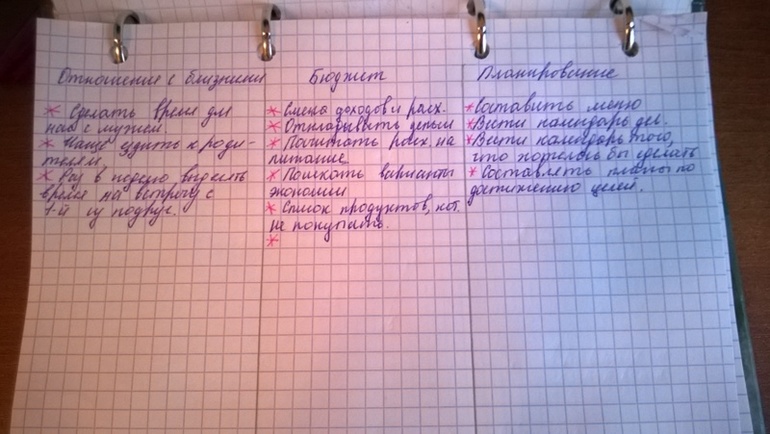 Отношения с близкими
* Сделать время для
нас с мужем.
* Чаще ездить к роди-
телям
* Раз в неделю выделять
время на встречу с
1-й из подруг.
Бюджет
* Смета доходов и расх.
* Откладывать деньги
* Посчитать расх. на
питание
* Поискать варианты
экономии
* Список продуктов, кот.
не покупать.
*
Планирование
* Составить меню
* Вести календарь дел.
* Вести календарь того,
что хотелось бы сделать
* Составлять планы по
достижению целей.